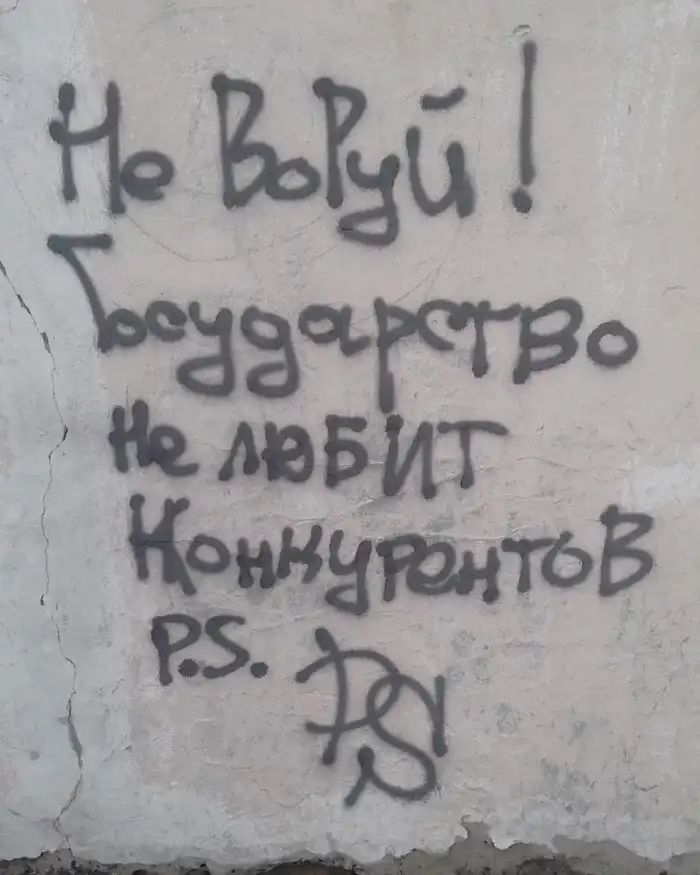 Не ВоРуй!
Государство
Не ЛЮБИТ
Конкурентов
P.S.